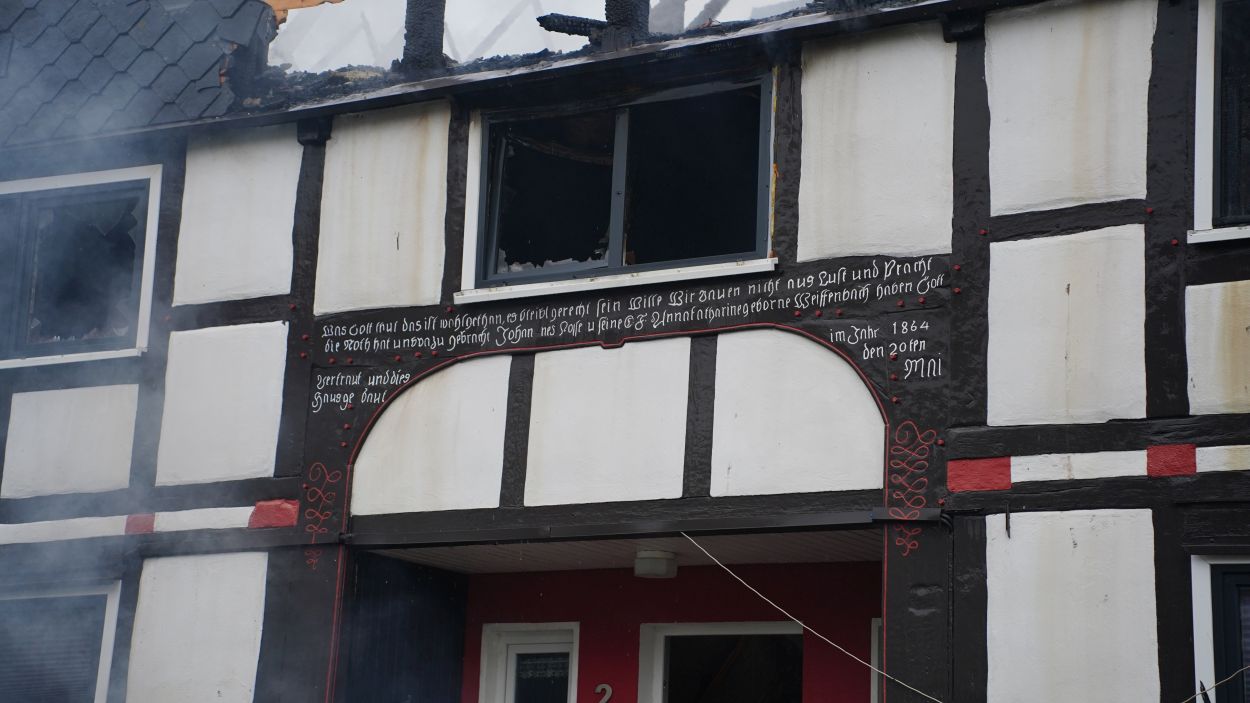 Was Gott thut das ist wohlgethan, es bleibt gerecht sein Wille Wir bauen nicht aus Lust und Pracht
die Noth hat uns dazu gebracht Johan nes Losse u seine E F: Annakatharine geborne Weissenbach haben Gott
vertraut und dies
Haus ge baut
im Jahr 1864
den 20ten
MAI
2